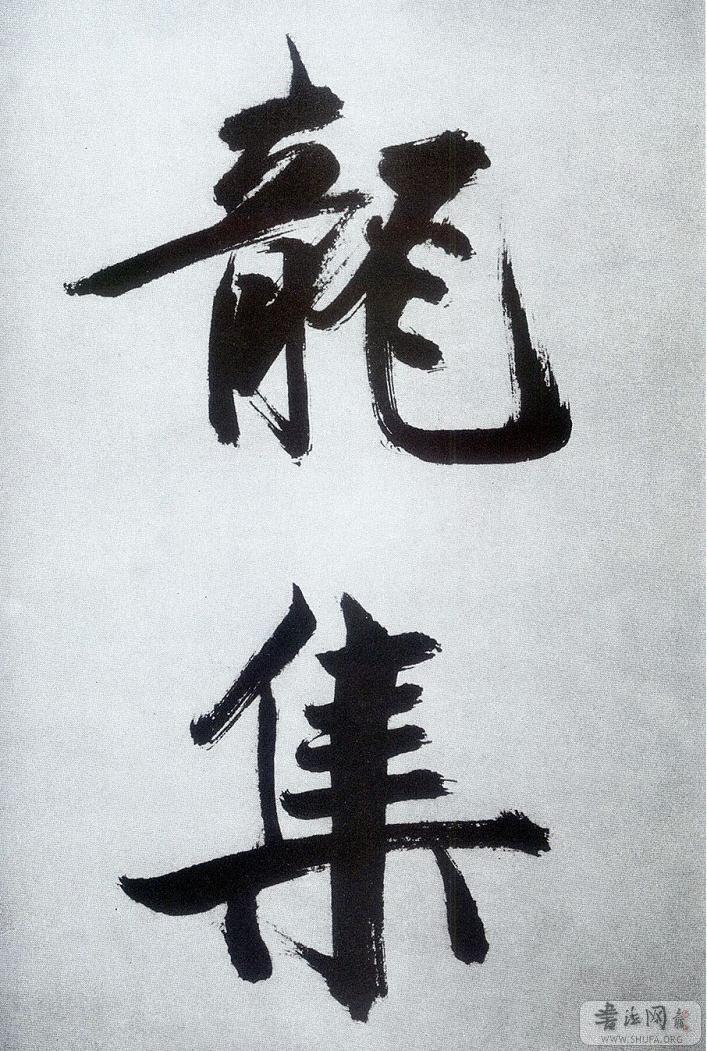 龍集
書法网
WWW.SHUFA.ORG